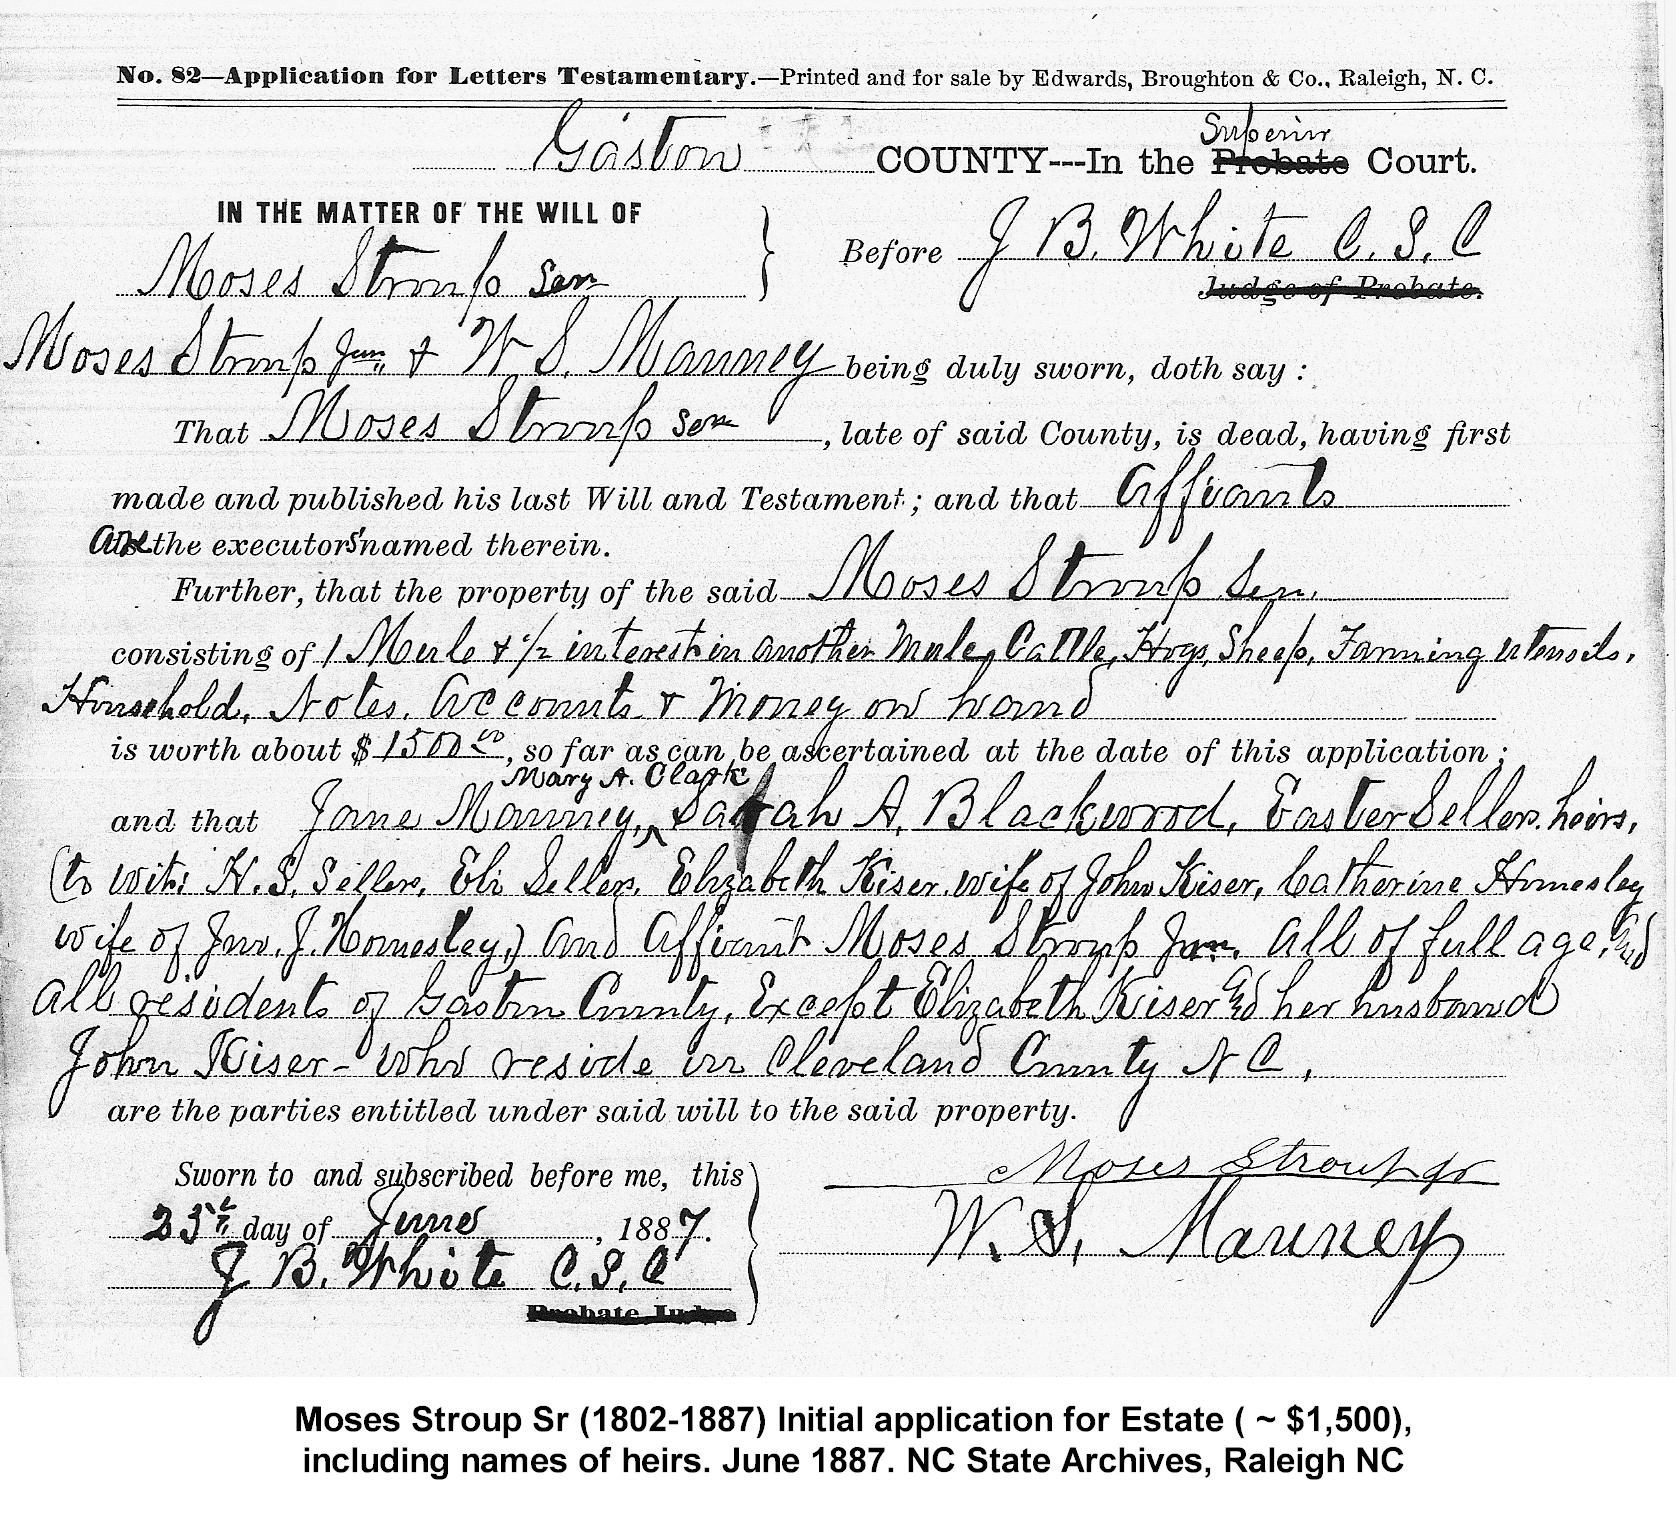 No. 82—Application for Letters Testamentary.—Printed and for sale by Edwards, Broughton & Co., Raleigh, N. C.
Superior
Gaston COUNTY---In the Probate Court.
IN THE MATTER OF THE WILL OF
Moses Stroup Sen
Before J B. White C. S. C
Judge of Probate.
Moses Stroup Jun & W S. Mauney being duly sworn, doth say :
That Moses Stroup Sen , late of said County, is dead, having first
made and published his last Will and Testament ; and that Affiants
are the executors named therein.
Further, that the property of the said Moses Stroup Sen.
consisting of 1 Mule & 1/2 interest in another Mule, Cattle, Hogs, Sheep, Farming utensils,
Household, Notes, Accounts & Money on hand
is worth about $ 1500 00, so far as can be ascertained at the date of this application ;
Mary A. Clark
and that Jane Mauney, ^ Sarah A. Blackwood, Easter Sellers heirs,
(to wit: H. S. Sellers, Eli Sellers, Elizabeth Kiser wife of John Kiser, Catherine Homesley
wife of Jno. J. Homesley,) and Affiant Moses Stroup Jun. all of full age, and
all residents of Gaston County, Except Elizabeth Kiser & her husband
John Kiser - who reside in Cleveland County N C,
are the parties entitled under said will to the said property.
Sworn to and subscribed before me, this
23rd day of June , 1887.
J B. White C. S. C
Probate Judge
Moses Stroup Jr
W. S. Mauney
Moses Stroup Sr (1802-1887) Initial application for Estate ( ~ $1,500),
including names of heirs. June 1887. NC State Archives, Raleigh NC